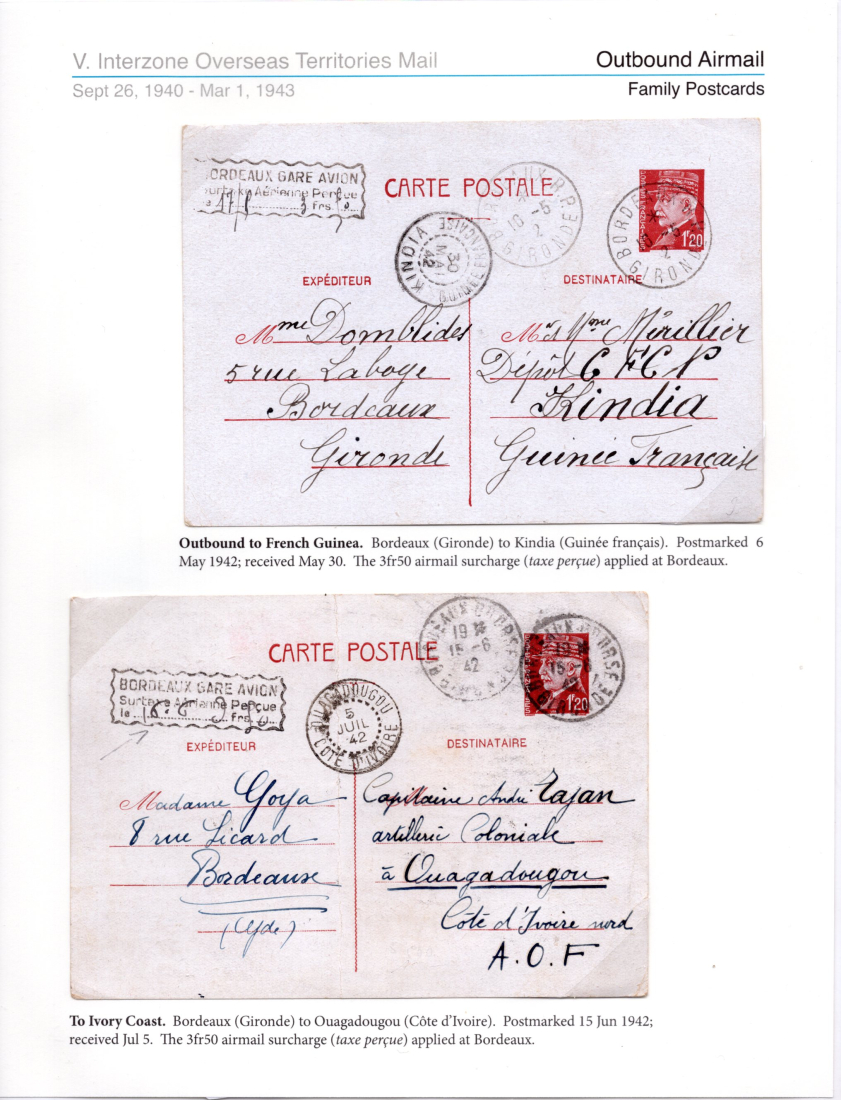 V. Interzone Overseas Territories Mail
Outbound Airmail
Sept 26, 1940 - Mar 1, 1943
Family Postcards
BORDEAUX GARE AVION
Surtaxe Aérienne Perçue
le 17/6 3 frs 50
CARTE POSTALE
BORDEAUX R.P.
16 -5
GIRONDE
KINDIA
30
MAI
42
GUINEE FRANCAISE
BORDEAUX
GIRONDE
1f20
EXPÉDITEUR
DESTINATAIRE
Mme Domblides
5 rue Laboye
Bordeaux
Gironde
M et Mme Mérillier
Dépôt C F C N
Kindia
Guinée Française
Outbound to French Guinea. Bordeaux (Gironde) to Kindia (Guinée français). Postmarked 6
May 1942; received May 30. The 3fr50 airmail surcharge (taxe perçue) applied at Bordeaux.
CARTE POSTALE
BORDEAUX BOURSE
19
15 -6
42
BORDEAUX BOURSE
19
15 -6
42
1f20
BORDEAUX GARE AVION
Surtaxe Aérienne Perçue
le 16.6 3 frs 50
OUAGADOUGOU
5
JUIL
42
COTE D'IVOIRE
EXPÉDITEUR
DESTINATAIRE
Madame Goya
8 rue Licard
Bordeaux
(Gde)
Capitaine André Tajan
artillerie Coloniale
à Ouagadougou
Côte d'Ivoire nord
A.O.F
To Ivory Coast. Bordeaux (Gironde) to Ouagadougou (Côte d'Ivoire). Postmarked 15 Jun 1942;
received Jul 5. The 3fr50 airmail surcharge (taxe perçue) applied at Bordeaux.